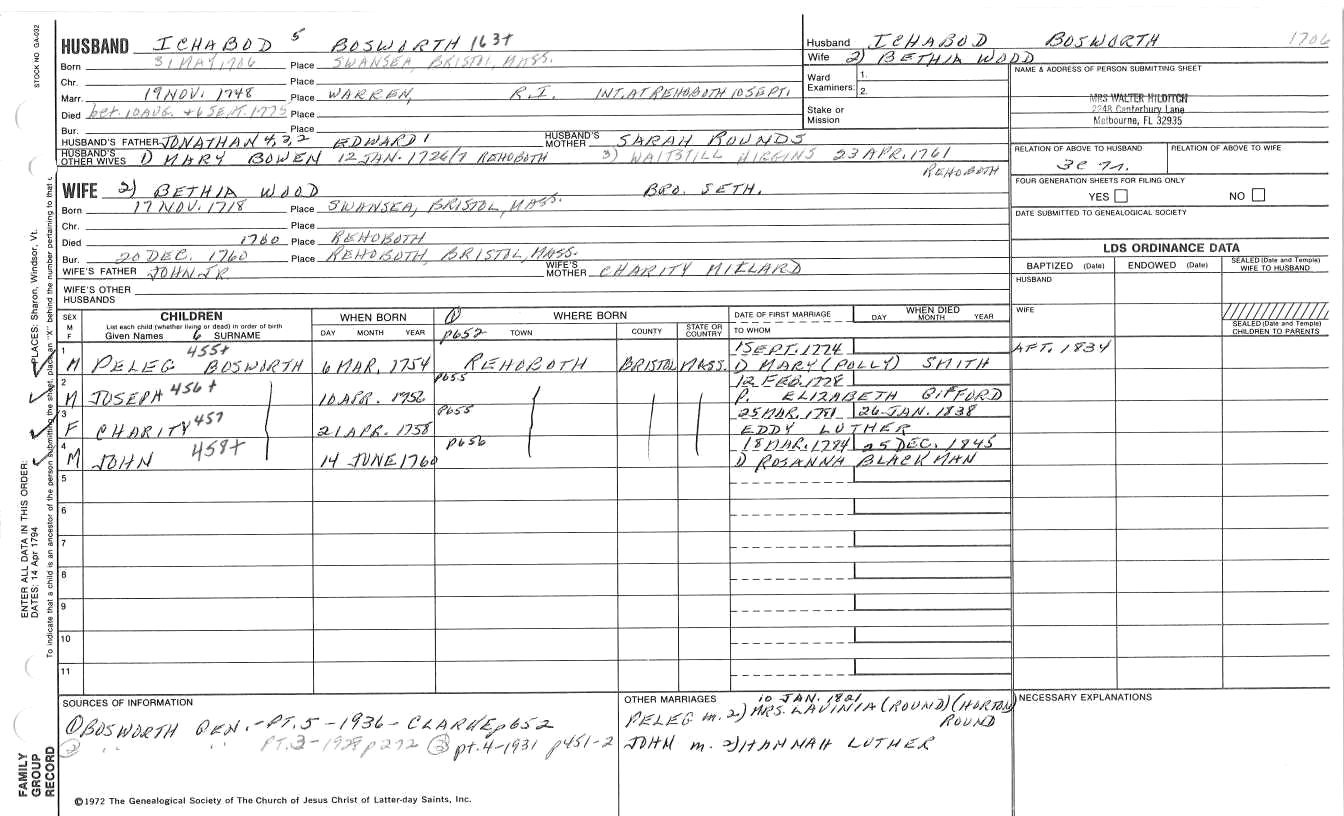 STOCK NO. GA-032
HUSBAND ICHABOD 5 BOSWORTH 163+
Born 31 MAY, 1706 Place SWANSEA, BRISTOL, MASS.
Chr. Place
Marr. 19 NOV. 1748 Place WARREN, R.I. INT. AT REHOBOTH 10 SEPT.
Died bet. 10 AUG. + 6 SEPT. 1775 Place
Bur. Place
HUSBAND'S FATHER JONATHAN 4, 3, 2 EDWARD 1 HUSBAND'S MOTHER SARAH ROUNDS
HUSBAND'S OTHER WIVES 1) MARY BOWEN 12 JAN. 1726/7 REHOBOTH 3) WAITSTILL HIGGINS 23 APR. 1761 REHOBOTH
WIFE 2) BETHIA WOOD BRO. SETH.
Born 17 NOV. 1718 Place SWANSEA, BRISTOL, MASS.
Chr. Place
Died 1760 Place REHOBOTH
Bur. 20 DEC. 1760 Place REHOBOTH, BRISTOL, MASS.
WIFE'S FATHER JOHN JR WIFE'S MOTHER CHARITY MILLARD
WIFE'S OTHER HUSBANDS
Husband ICHABOD BOSWORTH 1706
Wife 2) BETHIA WOOD
Ward 1.
Examiners: 2.
Stake or Mission
NAME & ADDRESS OF PERSON SUBMITTING SHEET
MRS WALTER HILDITCH
2248 Canterbury Lane
Melbourne, FL 32935
RELATION OF ABOVE TO HUSBAND RELATION OF ABOVE TO WIFE
FOUR GENERATION SHEETS FOR FILING ONLY
YES NO
DATE SUBMITTED TO GENEALOGICAL SOCIETY
LDS ORDINANCE DATA
BAPTIZED (Date) ENDOWED (Date) SEALED (Date and Temple) WIFE TO HUSBAND
HUSBAND
WIFE
SEALED (Date and Temple) CHILDREN TO PARENTS
SEX M F CHILDREN WHEN BORN 1 WHERE BORN DATE OF FIRST MARRIAGE WHEN DIED
List each child (whether living or dead) in order of birth
Given Names 6 SURNAME DAY MONTH YEAR p652 TOWN COUNTY STATE OR COUNTRY TO WHOM DAY MONTH YEAR
1 455+ 1 SEPT. 1774 AFT. 1834
M PELEG BOSWORTH 6 MAR. 1754 REHOBOTH BRISTOL MASS. 1) MARY (POLLY) SMITH
2 p655 12 FEB. 1778
M JOSEPH 456+ 10 APR. 1756 ELIZABETH GIFFORD
3 p655 25 MAR. 1781 26 JAN. 1838
F CHARITY 457 21 APR. 1758 EDDY LUTHER
4 458+ p656 18 MAR. 1784 25 DEC. 1845
M JOHN 14 JUNE 1760 1) ROSANNA BLACKMAN
5
6
7
8
9
10
11
SOURCES OF INFORMATION
① BOSWORTH GEN. - PT. 5 - 1936 - CLARKE p652
② " " PT. 3 - 1928 p272 ③ pt. 4 - 1931 p451-2
©1972 The Genealogical Society of The Church of Jesus Christ of Latter-day Saints, Inc.
OTHER MARRIAGES 10 JAN. 1821
PELEG m. 2) MRS. LAVINIA (ROUND) (HORTON) ROUND
JOHN m. 2) HANNAH LUTHER
NECESSARY EXPLANATIONS
FAMILY GROUP RECORD
ENTER ALL DATA IN THIS ORDER:
DATES: 14 Apr 1794
PLACES: Sharon, Windsor, Vt.
To indicate that a child is an ancestor of the person submitting the sheet, place an "X" behind the number pertaining to that